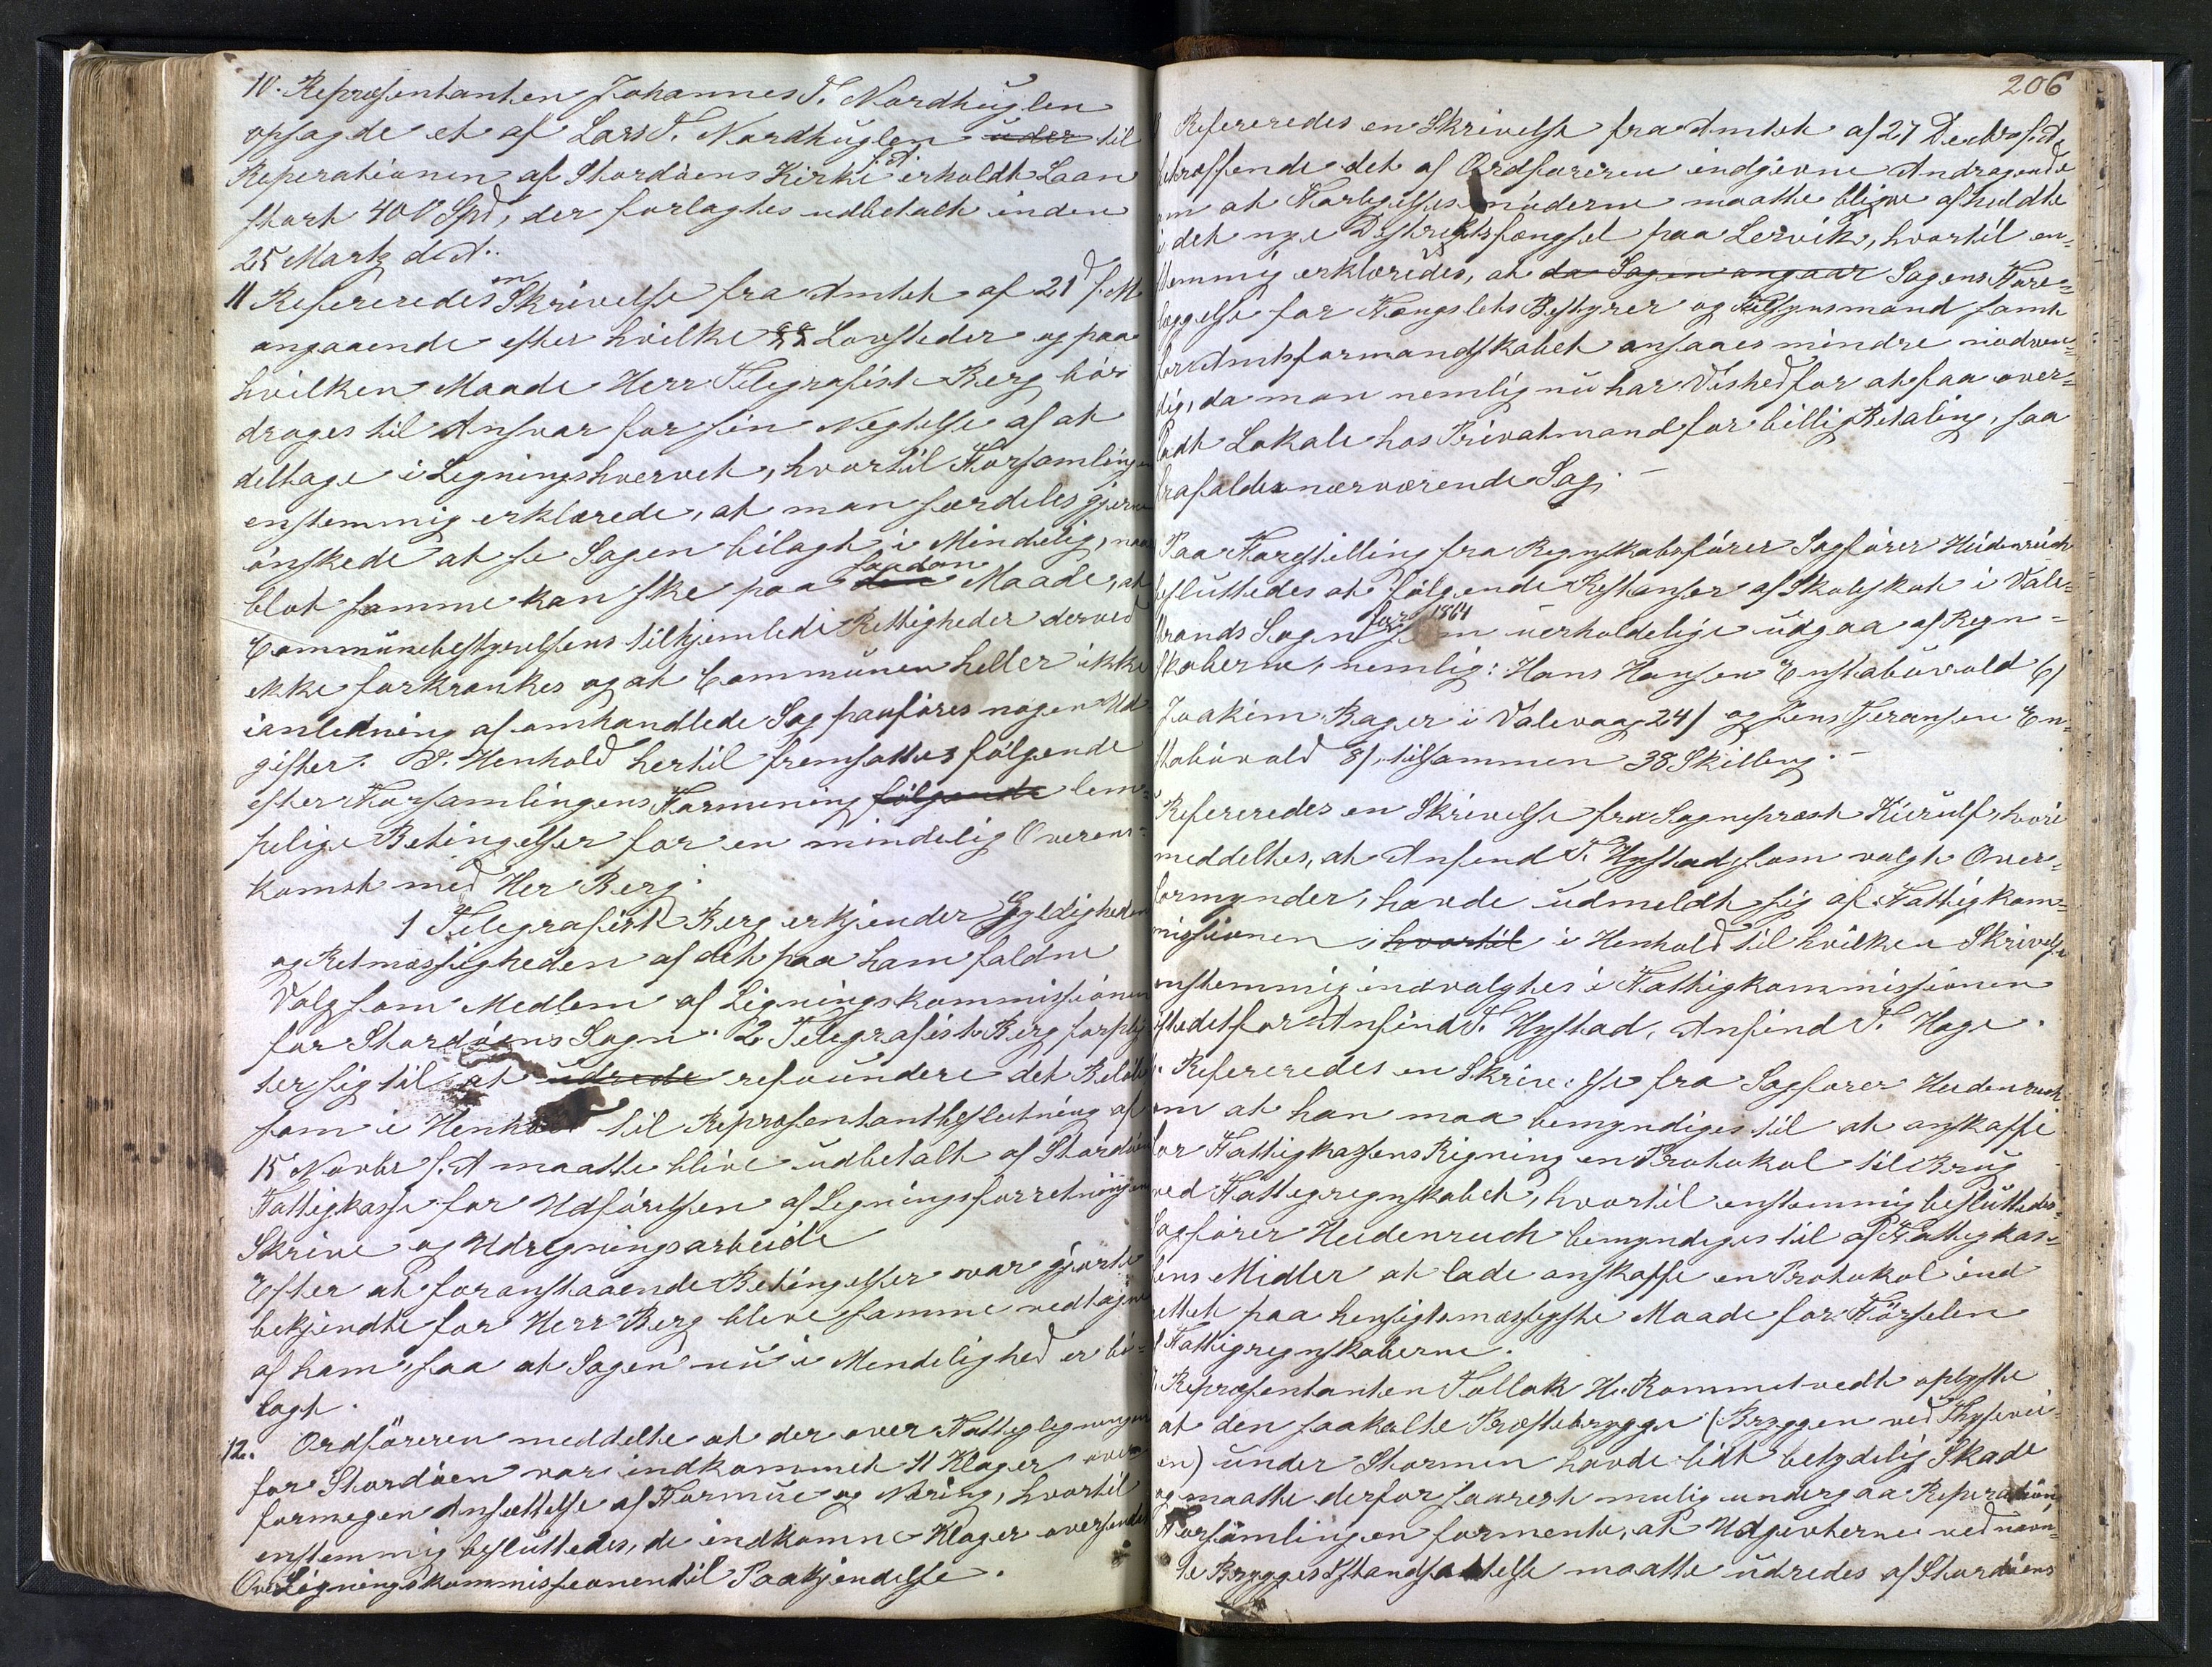 10. Repræsentanten Johannes T. Nordhuglen
opsagde et af Lars T. Nordhuglen uder til
Reperationen af Stordøens Kirke f. A. erholdt Laan
stort 400 Spd, der forlagtes udbetalt inden
25 Marts d. A.
11 Refereredes en Skrivelse fra Amtet af 21d f. M
angaaende efter hvilke §§ Lovsteder og paa
hvilken Maade Herr Telegrafist Berg bör
drages til Ansvar for sin Negtelse af at
deltage i Ligningshvervet, hvortil Forsamlingen
enstemmig erklærede, at man særdeles gjerne
önskede at se Sagen bilagt i Mindelig, naar
blot samme kan ske paa den saadan Maade, at
Communebestyrelsens tilkjemlede Rettigheder derved
ikke forkrænkes og at Communen heller ikke
ianledning af omhandlede Sag paaføres nogen Ud-
gifter. I Henhold hertil fremsattes følgende
efter Forsamlingens Formening følgende lem-
pelige Betingelser for en mindelig Overens-
komst med Her Berg.
1 Telegrafist Berg erkjender Gyldigheden
og Retmæssigheden af det paa ham faldne
Valg som Medlem af Ligningskommissionen
for Stordøens Sogn. 2 Telegrafist Berg forplig
ter sig til at udrede refoundere det Beløb
som i Henhold til Repræsentantbeslutning af
15 Novbr f. A maatte blive udbetalt af Stordøens
Fattigkasse for Udførelsen af Ligningsforretningens
Skrive og Udregningsarbeide
Efter at foranstaaende Betingelser var gjorte
bekjendte for Herr Berg bleve samme vedtagne
af ham, saa at Sagen nu i Mendelighed er bi-
lagt.
12. Ordføreren meddelte at der over Fatteglegningen
for Stordøen var indkommet 11 Klager over
formegen Ansættelse af Formue og Næring, hvortil
enstemmig besluttedes, de indkomne Klager oversendes
OverLigningskommissionen til Paakjendelse.
206
Refereredes en Skrivelse fra Amtet af 27 Decbr f. A.
betræffende det af Ordføreren indgivne Andragende
om at Forligelsesmøderne maatte blive afholdte
i det nye Distriktsfængsel paa Lervik, hvortil en-
stemmig erklæredes, at da Sagen angaar Sagens Fore-
læggelse for Fængslets Bestyrer og Tilsynsmand samt
for Amtsformandskabet ansaaes mindre nødven-
dig, da man nemlig nu har Vished for at faa over-
ladt Lokale hos Privatmand for billig Betaling, saa
frafaldes nærværende Sag. —
Paa Forestilling fra Regnskabsfører Sagfører Heidenreich
besluttedes at følgende Restanser af Skoleskat i Vale-
strands Sogn for 1864 som uerholdelige udgaa af Regn-
skaberne, nemlig: Hans Hansen Enstabøvold 6/
Joakim Bager i Valevaag 24/ og Jens Iveransen En-
stabøvold 8/, tilsammen 38 Skilling. —
Refereredes en Skrivelse fra Sogneprest Kierulf, hvori
meddeltes, at Anfend T. Hystad, som valgt Over-
formynder, havde udmeldt sig af Fattigkom-
missionen, hvortil i Henhold til hvilken Skrivelse
enstemmig indvalgtes i Fattigkommissionen
istedetfor Anfind T. Hystad, Anfind T. Hage.
Refereredes en Skrivelse fra Sagfører Heidenreich
om at han maa bemyndiges til at anskaffe
for Fattigkassens Rigning en Protokol til Brug
ved Fattigregnskabet, hvortil enstemmig besluttedes
Sagfører Heidenreich bemyndiges til af Fattigkas-
sens Midler at lade anskaffe en Protokol ind
rettet paa hensigtsmæssigste Maade for Førselen
af Fattigregnskaberne.
Repræsentanten Tollak H. Rommetvedt oplyste
at den saakalte Præstebrygge (Bryggen ved Thysevei-
en) under Stormen havde lidt betydelig Skade
og maatte derfor snarest mulig undergaa Reperation
Forsamlingen formente, at Udgivterne ved nævn-
te Brygges Istandsættelse maatte udredes af Stordøens